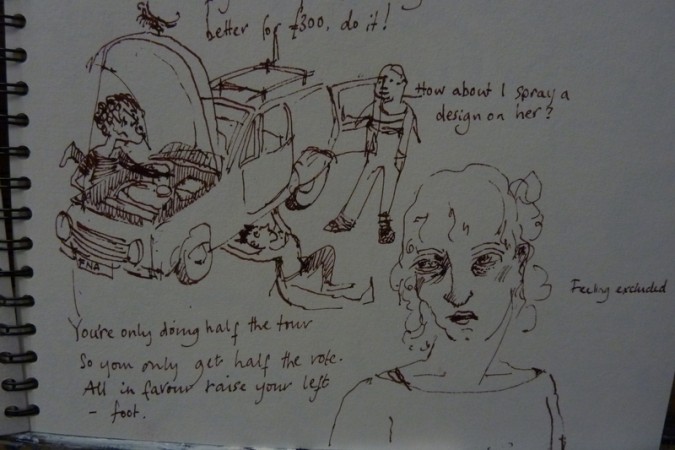 better for £300, do it!
How about I spray a
design on her?
Feeling excluded
RNA
You're only doing half the tour
So you only get half the vote.
All in favour raise your left
- foot.